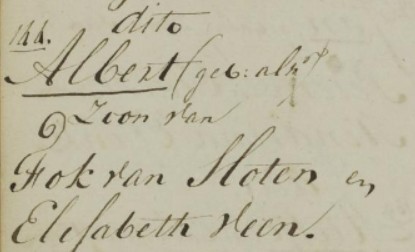 dito
144.
Albert (geb: als
Zoon van
Fok van Sloten en
Elisabeth Veen.